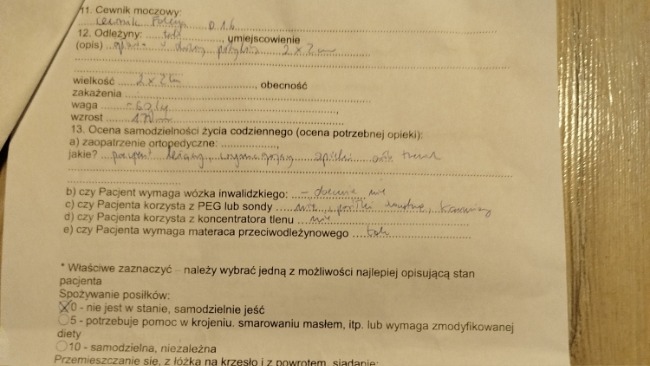 11. Cewnik moczowy:
cewnik Foley 16
12. Odleżyny: tak, umiejscowienie
(opis) 2x2 cm
wielkość 2x2 cm, obecność
zakażenia
waga ~60 kg
wzrost 170 cm
13. Ocena samodzielności życia codziennego (ocena potrzebnej opieki):
a) zaopatrzenie ortopedyczne:
jakie? pacjent leżący, wymagający opieki
b) czy Pacjent wymaga wózka inwalidzkiego: - obecnie nie
c) czy Pacjenta korzysta z PEG lub sondy nie, posiłki
d) czy Pacjenta korzysta z koncentratora tlenu nie
e) czy Pacjenta wymaga materaca przeciwodleżynowego tak
* Właściwe zaznaczyć - należy wybrać jedną z możliwości najlepiej opisującą stan
pacjenta
Spożywanie posiłków:
0 - nie jest w stanie, samodzielnie jeść
5 - potrzebuje pomoc w krojeniu. smarowaniu masłem, itp. lub wymaga zmodyfikowanej
diety
10 - samodzielna, niezależna
Przemieszczanie się, z łóżka na krzesło i z powrotem, siadanie: